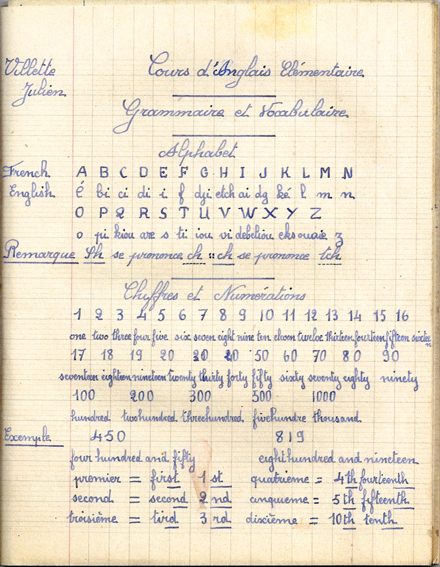 Villette Cours d'Anglais Elémentaire
Julien
Grammaire et Vocabulaire
Alphabet
French A B C D E F G H I J K L M N
English é bi ci di i f dji etch ai dg ké l m n
O P Q R S T U V W X Y Z
o pi kiou are s ti iou vi debeliou eks ouaie z
Remarque Sh se prononce ch :: ch se prononce tch
Chuffres et Numérations
1 2 3 4 5 6 7 8 9 10 11 12 13 14 15 16
one two three four five six seven eight nine ten eleven twelve thirteen fourteen fifteen sixteen
17 18 19 20 20 20 50 60 70 80 90
seventeen eighteen nineteen twenty thirty forty fifty sixty seventy eighty ninety
100 200 300 500 1000
hundred two hundred three hundred five hundre thousand
Exemple 450 819
four hundred and fifty eight hundred and nineteen
premier = first 1st quatrieme = 4th fourteenth
second = second 2nd cinqueme = 5th fifteenth
troisième = tird 3rd dixième = 10th tenth